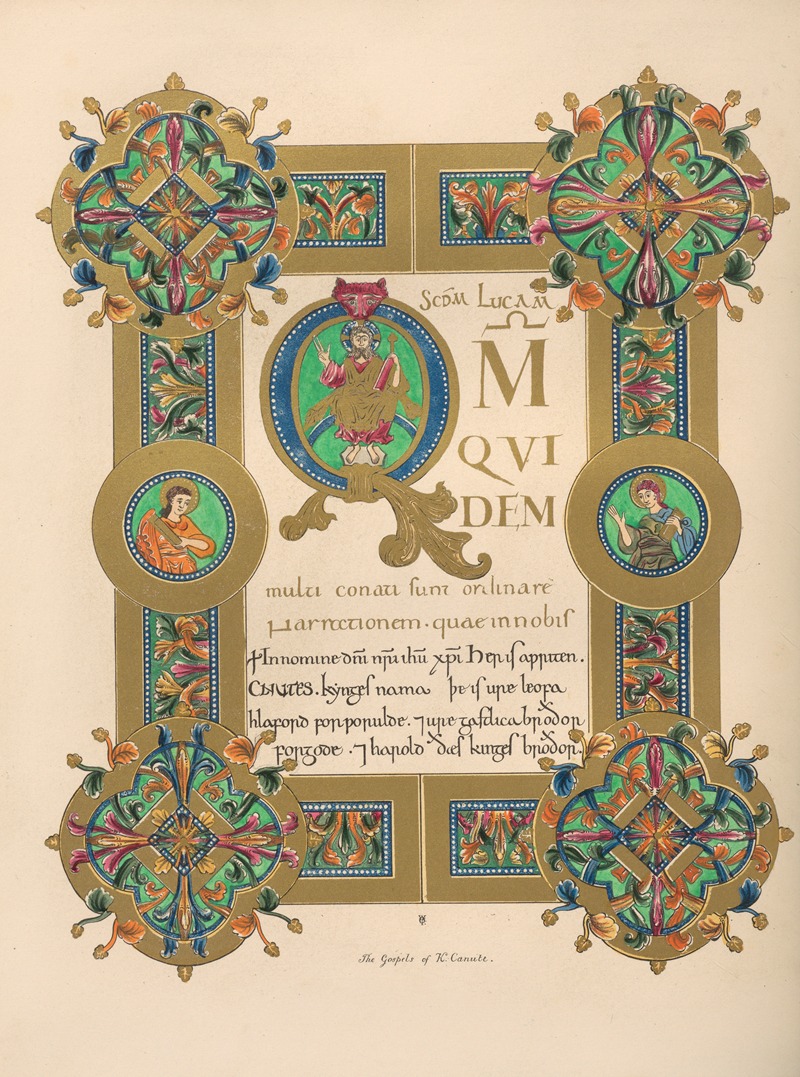 SCD̄M LUCAM
Q M̄
QVI
DEM
multi conati sunt ordinare
Narrationem · quae in nobis
+ In nomine dn̄i nr̄i ihū xp̄i. Her is aƿriten.
CNUTES. kẏnges nama þe is ure leofa
hlaford for ƿorulde. ⁊ ure gastlica broðor
for gode. ⁊ harold ðæs kinges broðor.
The Gospels of K. Canute.